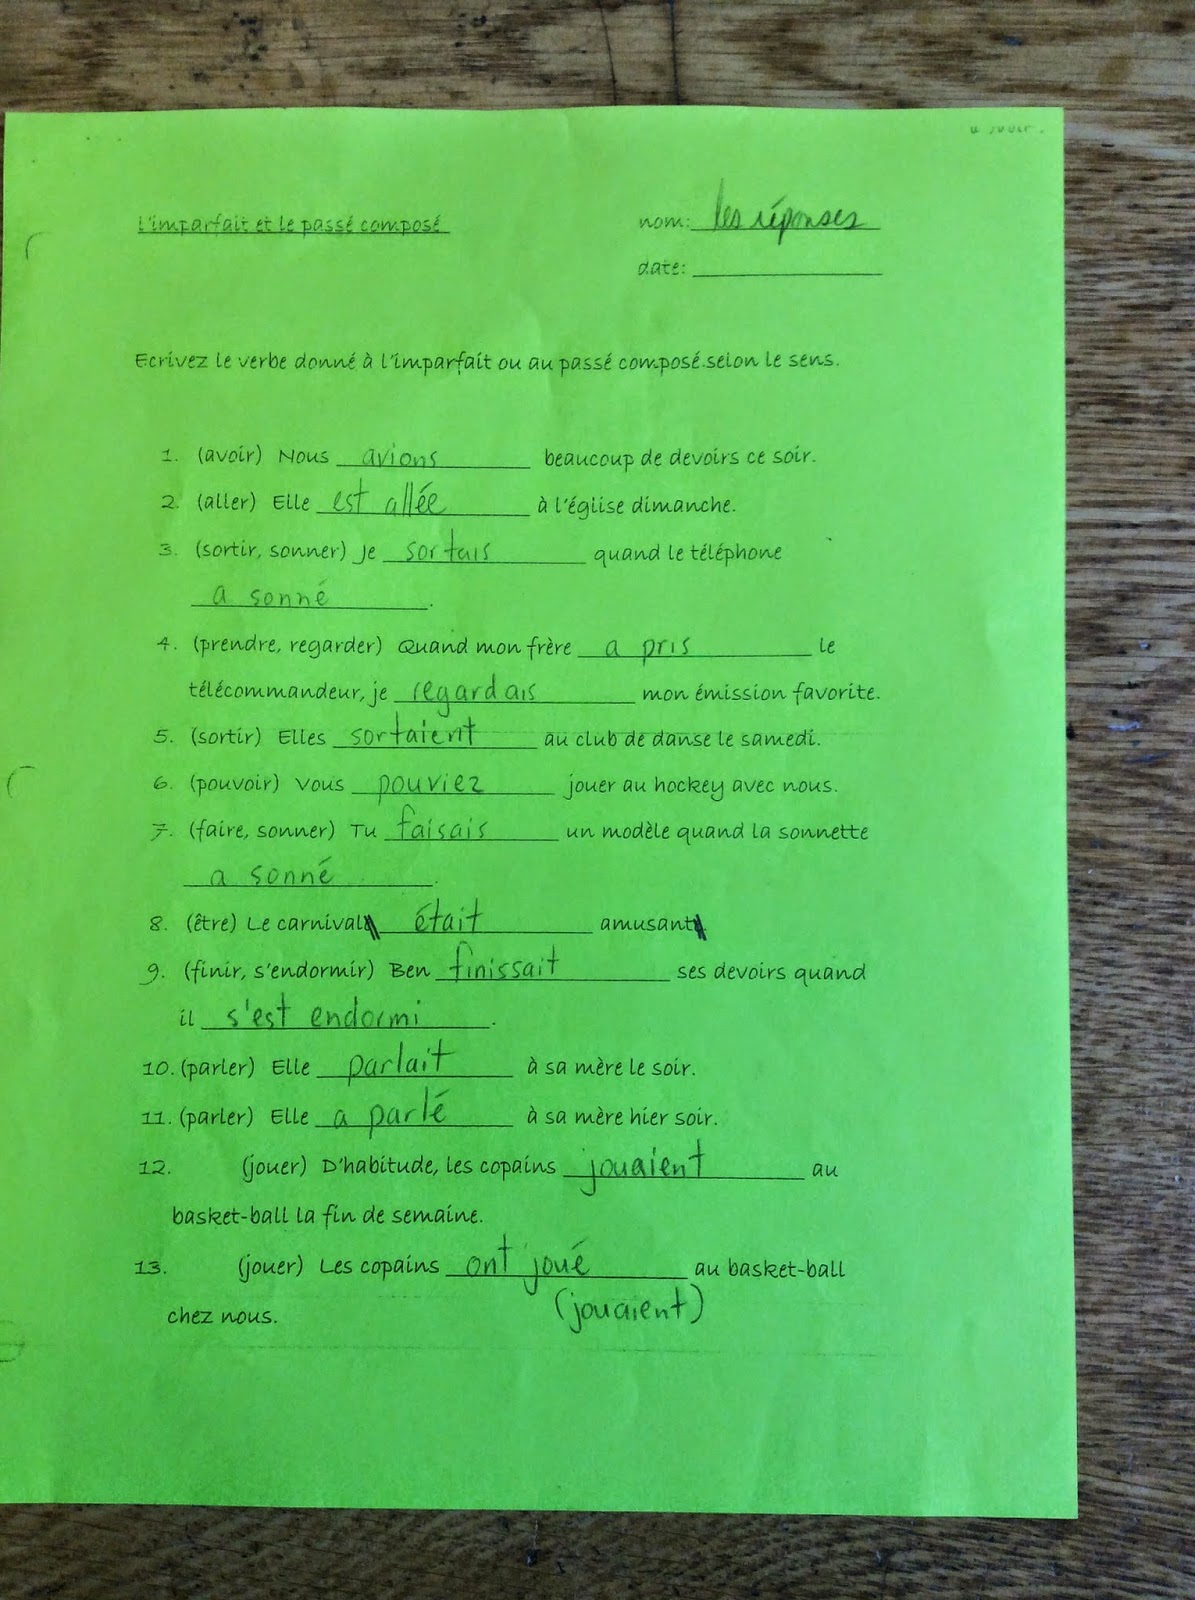 L'imparfait et le passé composé nom: les réponses
date:
Ecrivez le verbe donné à l'imparfait ou au passé composé selon le sens.
1. (avoir) Nous avions beaucoup de devoirs ce soir.
2. (aller) Elle est allée à l'église dimanche.
3. (sortir, sonner) Je sortais quand le téléphone
a sonné.
4. (prendre, regarder) Quand mon frère a pris le
télécommandeur, je regardais mon émission favorite.
5. (sortir) Elles sortaient au club de danse le samedi.
6. (pouvoir) Vous pouviez jouer au hockey avec nous.
7. (faire, sonner) Tu faisais un modèle quand la sonnette
a sonné.
8. (être) Le carnival était amusant
9. (finir, s'endormir) Ben finissait ses devoirs quand
il s'est endormi.
10. (parler) Elle parlait à sa mère le soir.
11. (parler) Elle a parlé à sa mère hier soir.
12. (jouer) D'habitude, les copains jouaient au
basket-ball la fin de semaine.
13. (jouer) Les copains ont joué au basket-ball
chez nous. (jouaient)